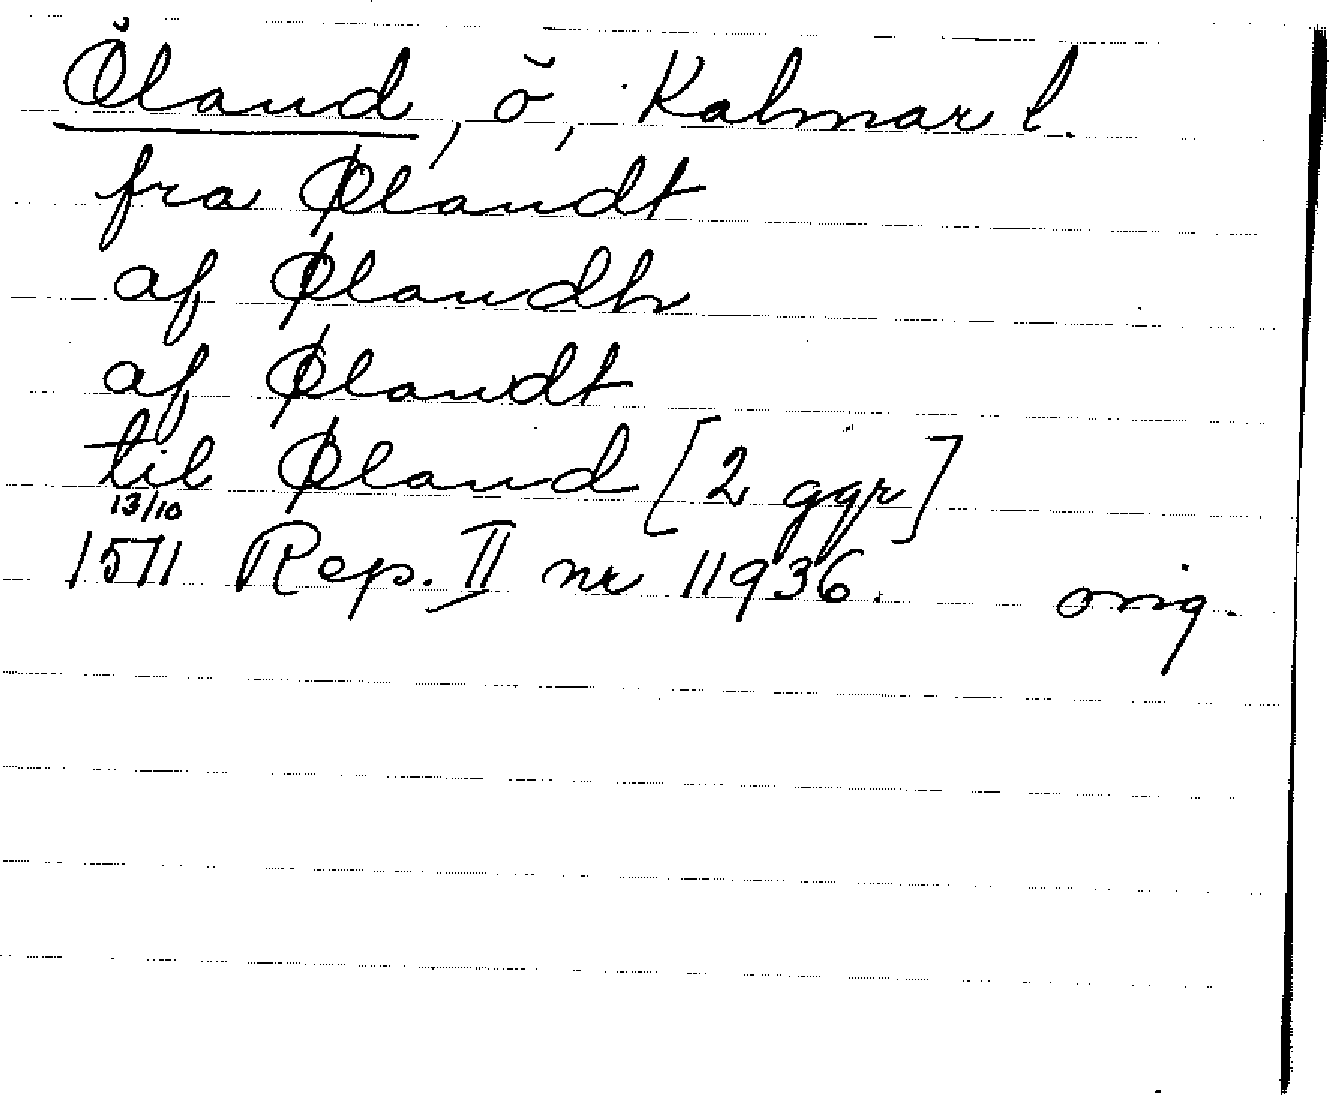 Öland, ö, Kalmar l.
fra Ølandt
af Ølandh
af Ølandt
til Øland [2 ggr]
13/10
1571 Rep. II nr 11936. orig.